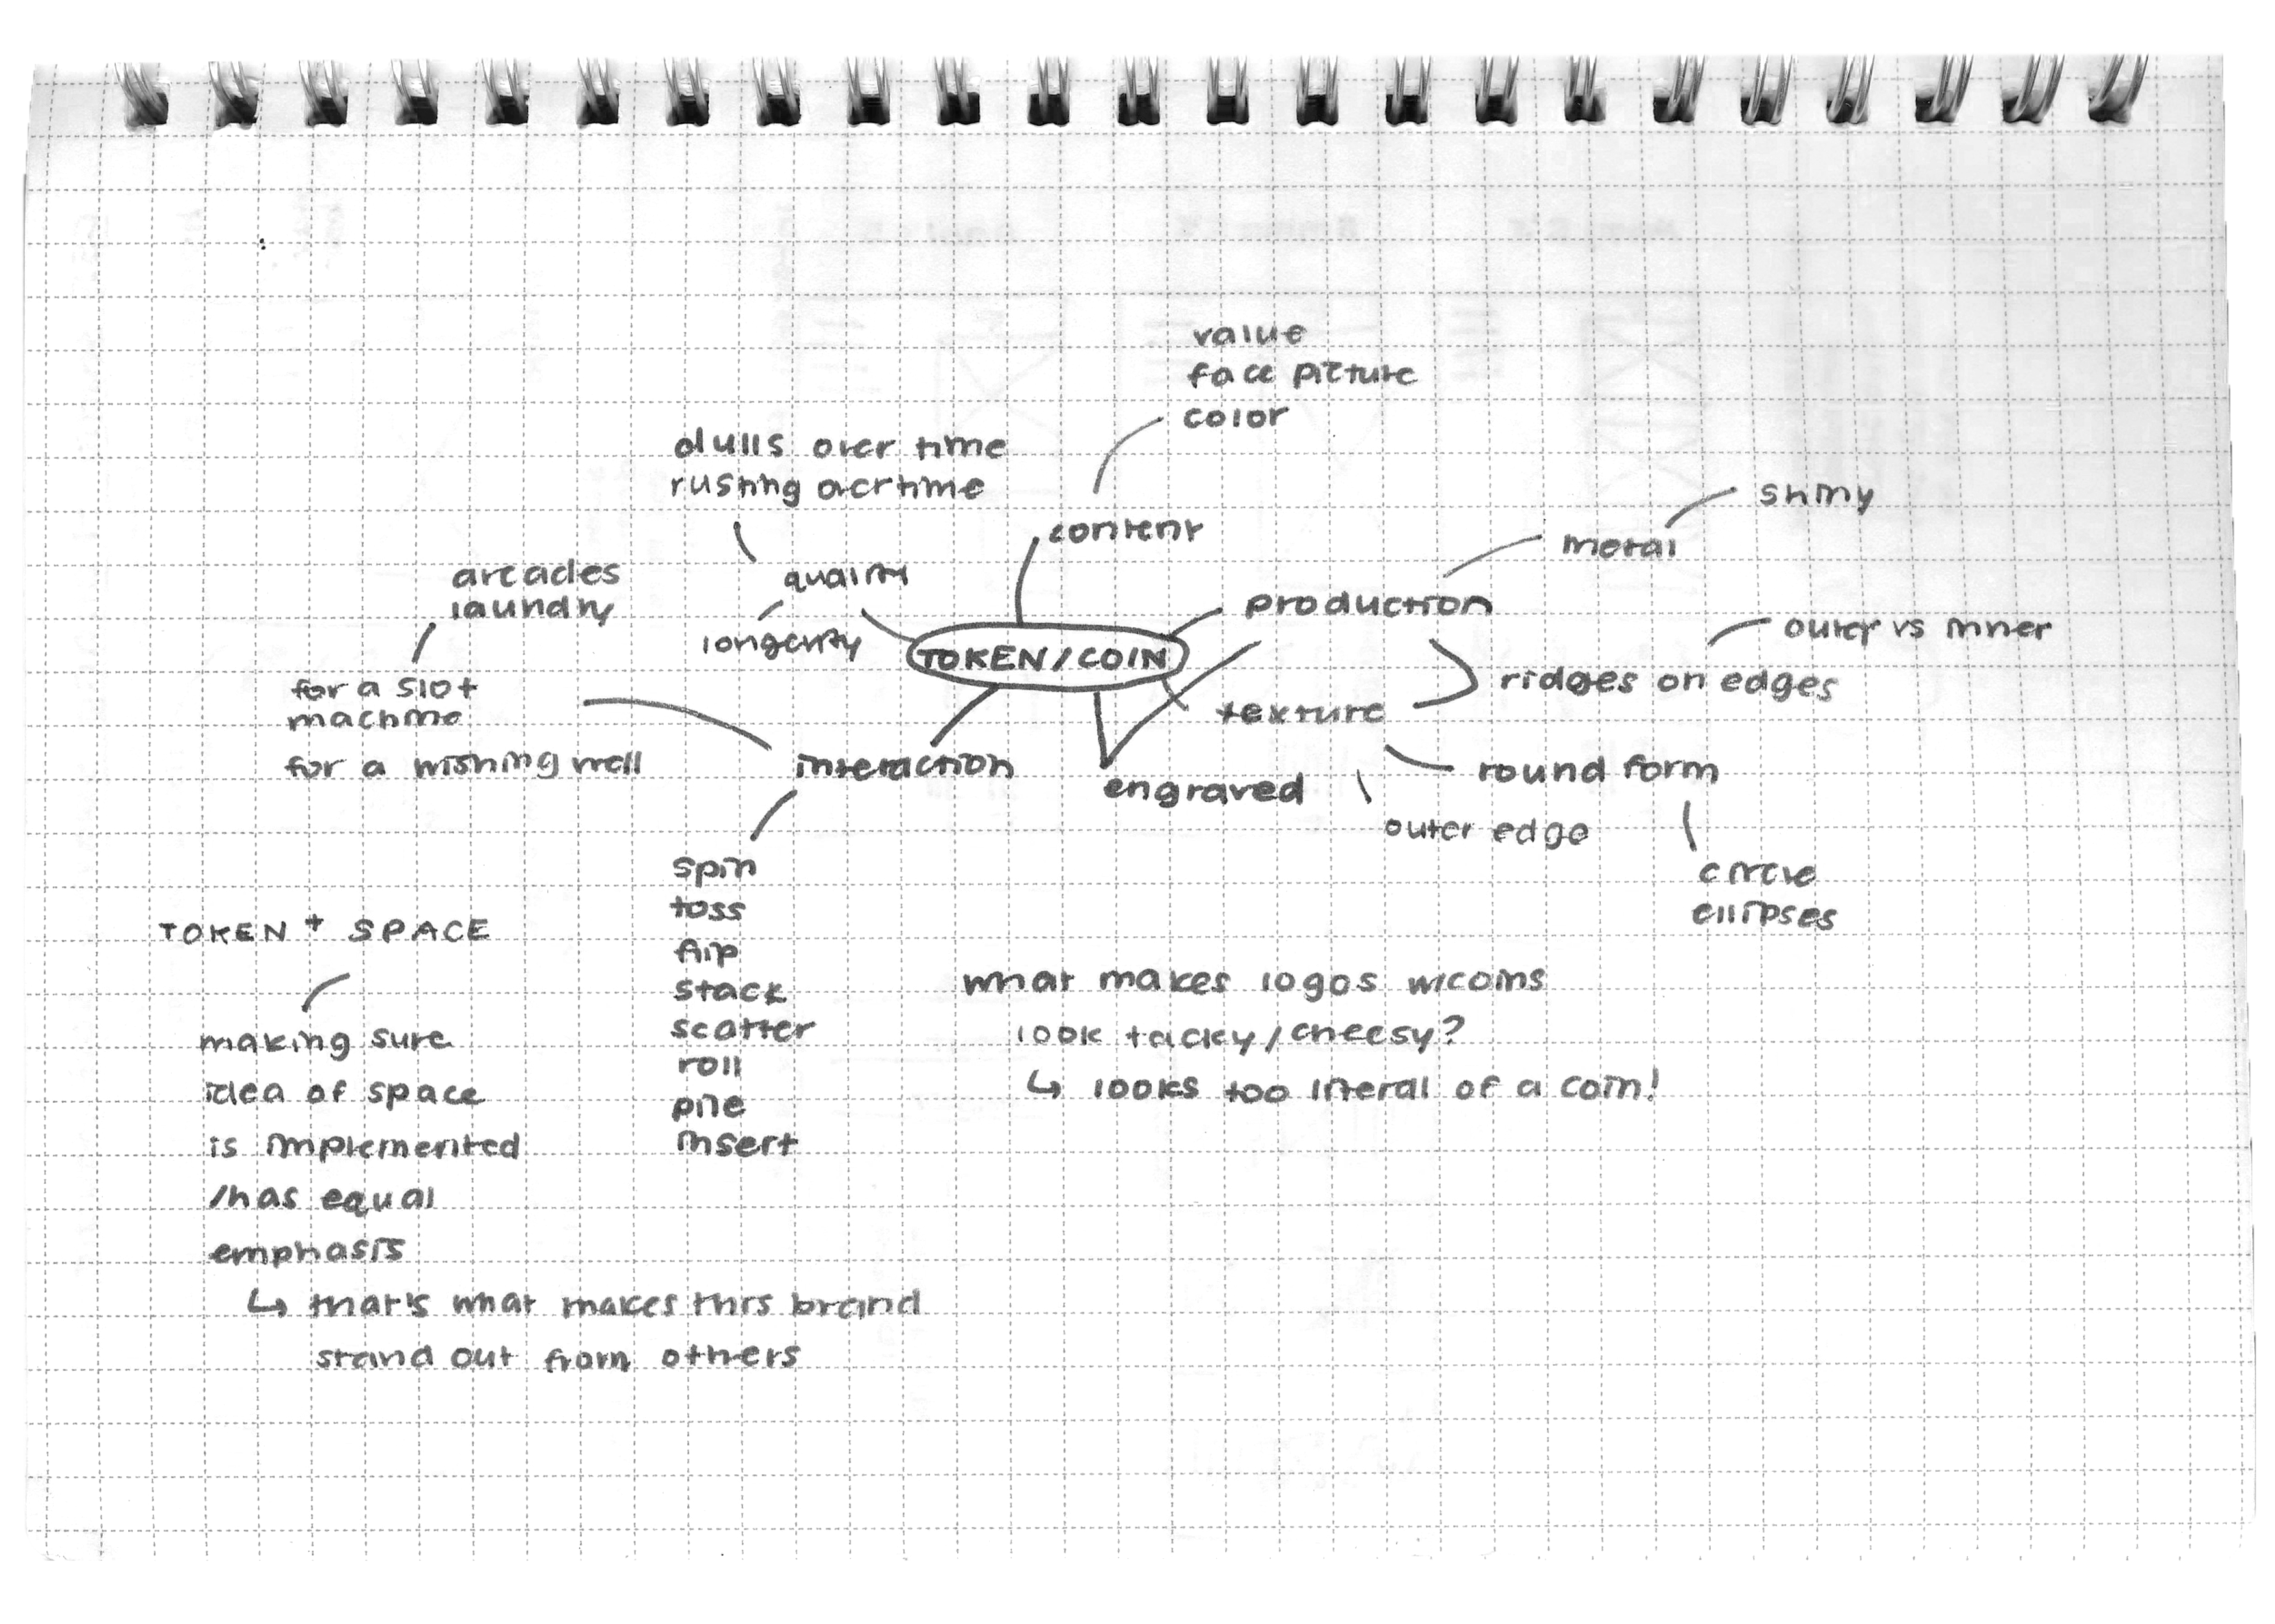 value
face picture
color
dulls over time
rusting over time
content
shiny
metal
arcades
laundry
quality
longevity
production
TOKEN/COIN
outer vs inner
ridges on edges
for a slot
machine
texture
for a wishing well
interaction
engraved
round form
outer edge
circle
ellipses
spin
toss
flip
stack
scatter
roll
pile
insert
TOKEN + SPACE
making sure
idea of space
is implemented
/has equal
emphasis
↳ that's what makes this brand
stand out from others
what makes logos w/coins
look tacky/cheesy?
↳ looks too literal of a coin!